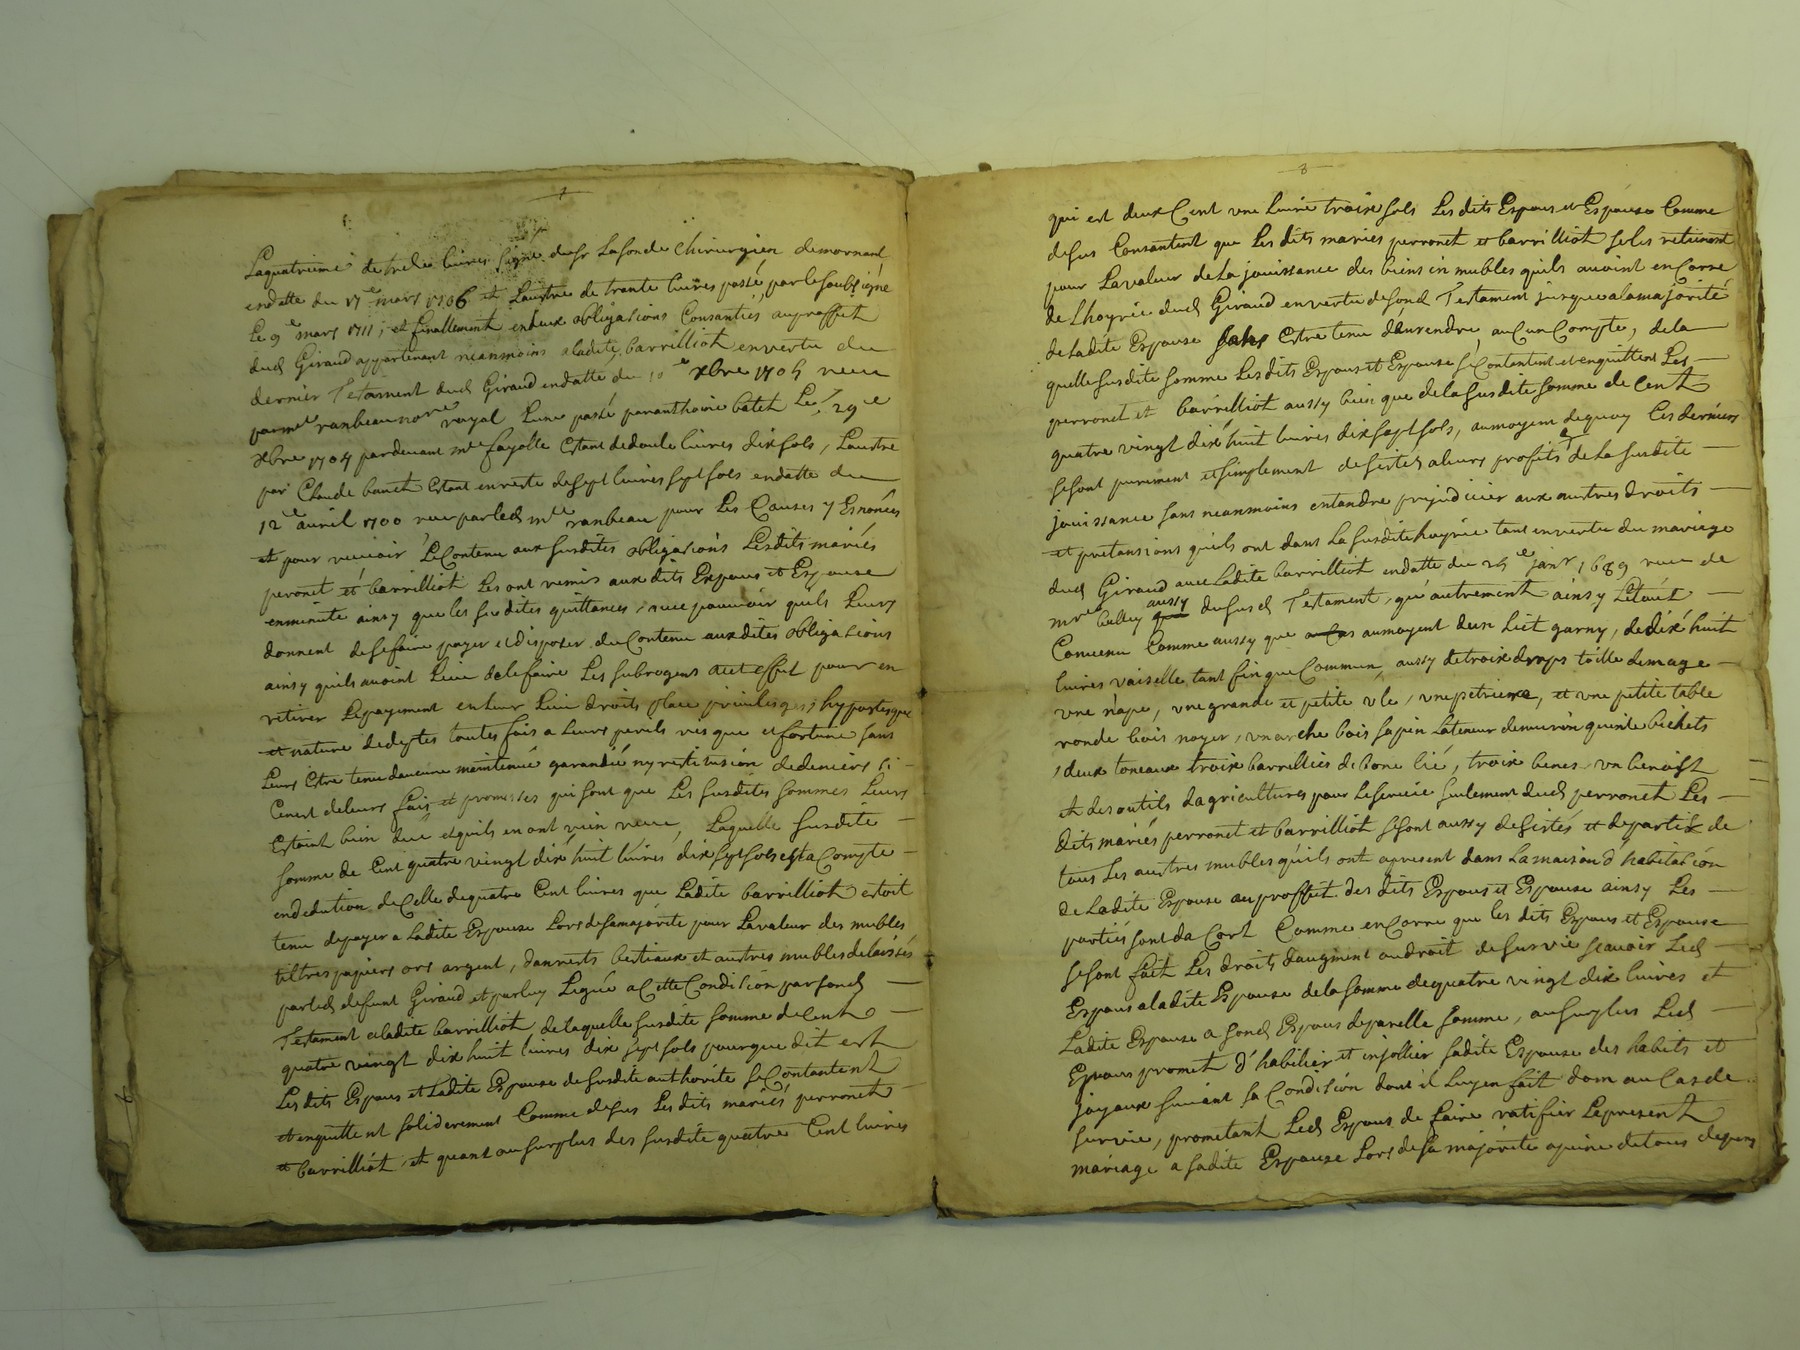 7
Laquatrieme de treize livres signé dusr Lafonde chirurgien demornant
endatte du 17e mars 1706 et Lautre de trante livres passé par le soubsigné
Le 9e mars 1711; et finallement endeux obligations Consanties auproffit
dud Giraud appartenant neanmoins aladite barrilliot envertu du
dernier Testament dud Giraud endatte du xbre 1705 receu
parme ranbeau nore royal Lune passé paranthoine batet Le 29e
xbre 1704 pardevant me fayolle Estant dedouze livres dix sols, Lautre
par Claude banet Estant enreste desept livres sept sols endatte du
12e avril 1700 receu parled me ranbeau pour Les Causes y Enoncés
et pour recevoir LeContenu aux susdites obligations Lesdits mariés
peronet et barrilliot Les ont remis aux dits Espoux et Espouse
enminute ainsy que les susdites quittances, avec pouvoir quils Leurs
donnent desefaire payer et disposer duContenu auxdites obligations
ainsy quils avoint Lieu delefaire Les subrogens acet effet pour en
retirer Lepayement enleur Lieu droits place privileges, hypoteque
et nature dedeptes toutes fois a Leurs perils risque et fortune sans
Leurs Estre tenu daucune maintenué garandié ny restitusion dedeniers si
Cenest deleurs fais et promesses qui sont que Les susdites sommes Leurs
Estoint bien dué etquils enont rien receu, Laquelle susdite
somme de Cent quatre vingt dix huit livres dix sept sols est a Compte
endedution de Celle dequatre Cent livres que Ladite barrilliot estoit
tenu depayer a Ladite Espouse Lors desamajorité pour Lavaleur des mubles
tiltres papiers ors argent, danrerts bestiaux et autres mubles delaissés
parled defunt Giraud et parluy Legué a Cette Condision parsond
Testament aladite barrilliot, delaquelle susdite somme deCent
quatre vingt dix huit livres dix sept sols pourque dit est
Les dits Espoux et Ladite Espouse desusdite authorité seContantent
et enquittent soliderement Comme desus Les dits mariés perronet
et barrilliot, et quant ausurplus des susdite quatre Cent livres
8
qui est deux Cent une livre troix sols Les dits Espoux et Espouse Comme
desus Consantent que Les dits mariés perronet et barrilliot seles retienent
pour Lavaleur de La jouissance des biens in mubles quils avoint enCorre
de Lhoyrie dud Giraud envertu desond Testament jusque alamajorité
deladite Espouse sans Estre tenu deurendre aucun Compte, dela
quelle susdite somme Lesdits Espoux et Espouse seContentent et enquittent Les
perronet et barrilliot aussy bien que dela susdite somme de Cent
quatre vingt dix huit livres dix sept sols, aumoyen dequoy Ces derniers
sesont purement et simplement desistés aleurs profits de La susdite
jouissance sans neanmoins entandre prejudicier aux autres droits
et pretansions quils ont dans La susdite hoyrie tant envertu du mariage
dud Giraud avec Ladite barrilliot endatte du 25e janr 1689 receu de
mre bulley aussy dusus d Testament, qu'autrement ainsy Letout
Convenu Comme aussy que aumoyent dun Liet garny, dedix huit
livres vaiselle tant fin que Commun, aussy detroix draps toille demage
une nape, une grande et petite ule, unepetriere, et une petite table
ronde bois noyer, un arche bois sapin Lateneur denviron quinze bichets
, deux toneaux troix barrilliés debone lié, troix benes un benoist
et des outils dagricultures pour Leservice seulement dud perronet Les
dits mariés perronet et barrilliot sesont aussy desistés et departis de
tous Les autres mubles quils ont apresent dans Lamaison d'habitasion
deLadite Espouse auproffit des dits Espoux et Espouse ainsy Les
partiés sont da Cort Comme enCorre que les dits Espoux et Espouse
sesont fait Les droits daugment oudroit desurvie scavoir Led
Espoux aladite Espouse delasomme dequatre vingt dix livres et
Ladite Espouse a sond Espoux deparelle somme, au surplus Led
Epoux promet d'habilier et injollier sadite Espouse des habits et
joyaux suivant sa Condision dont il Luy en fait dom au Cas de
survie, prometant Led Espoux de faire ratifier Lepresent
mariage a sadite Espouse Lors desa majorité apeine detous depens